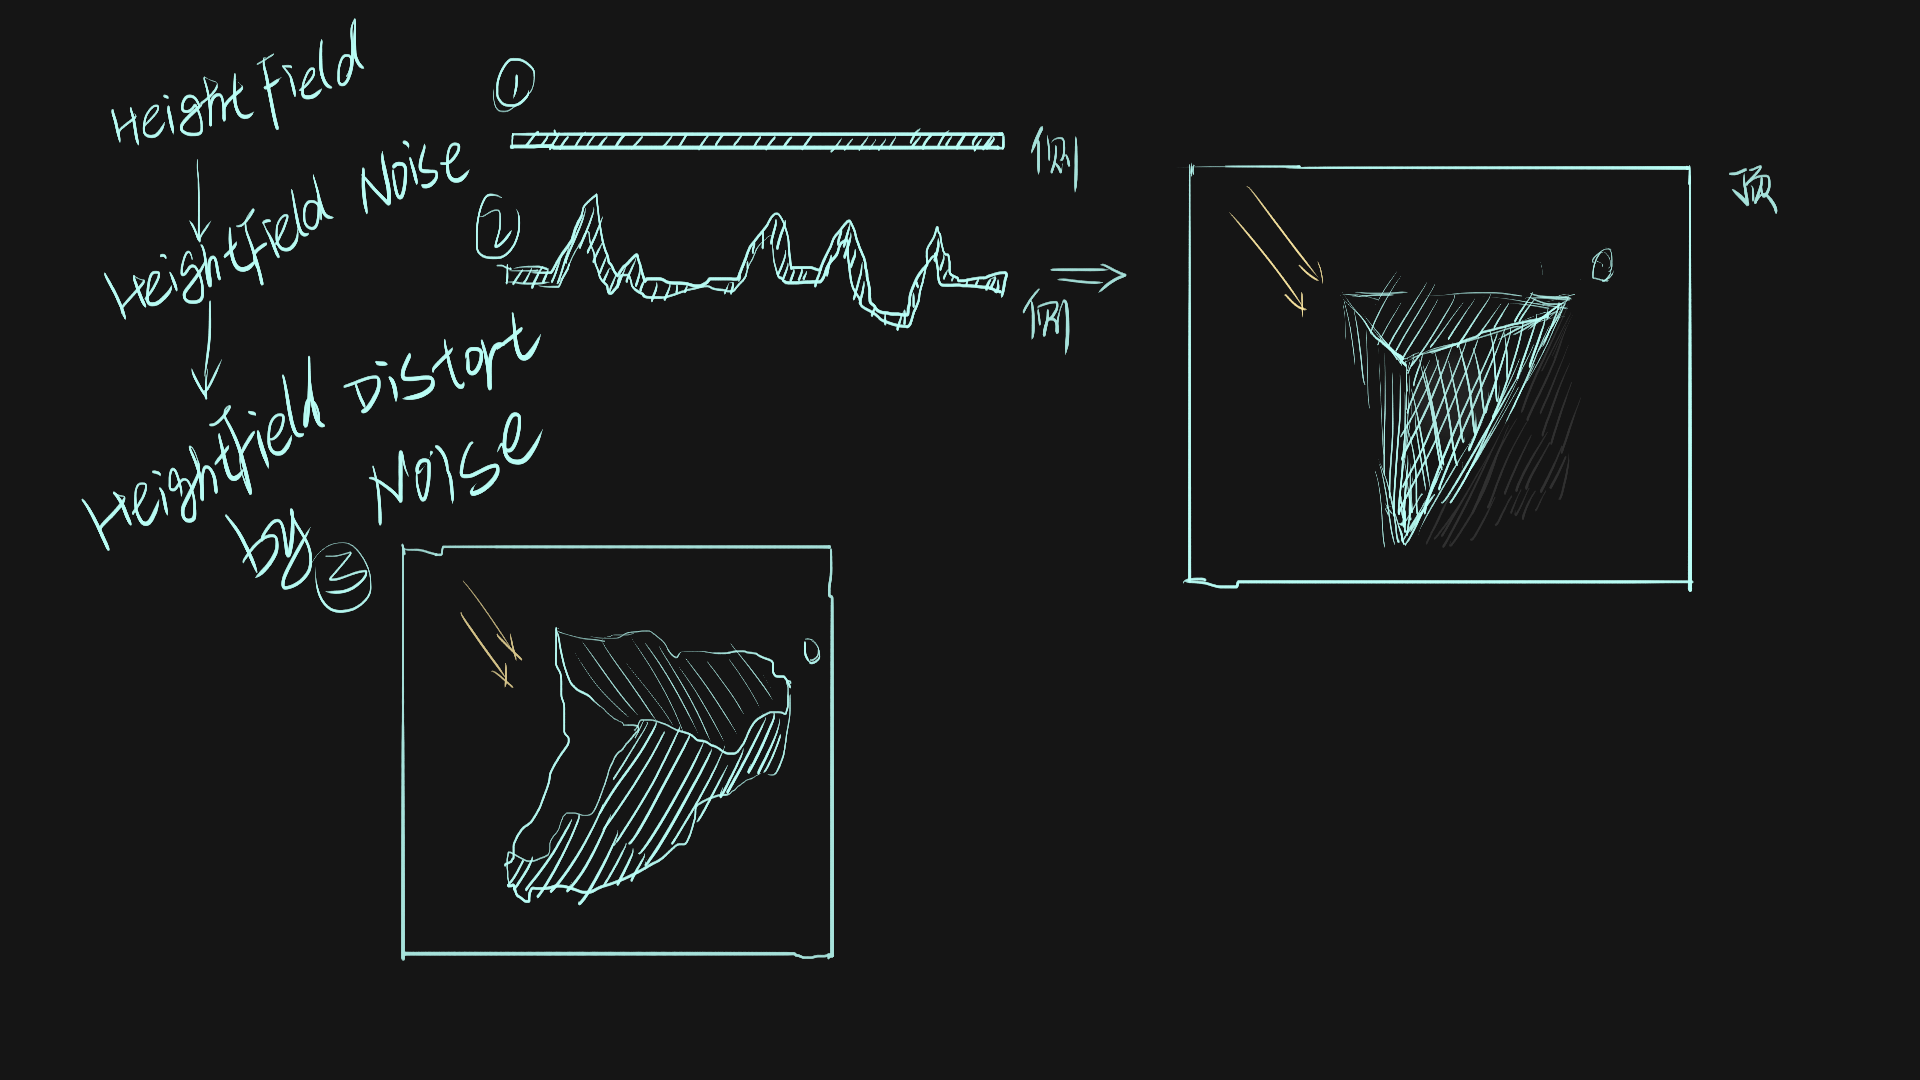 HeightField
HeightField Noise
HeightField Distort
by Noise
①
侧
②
侧
顶
③